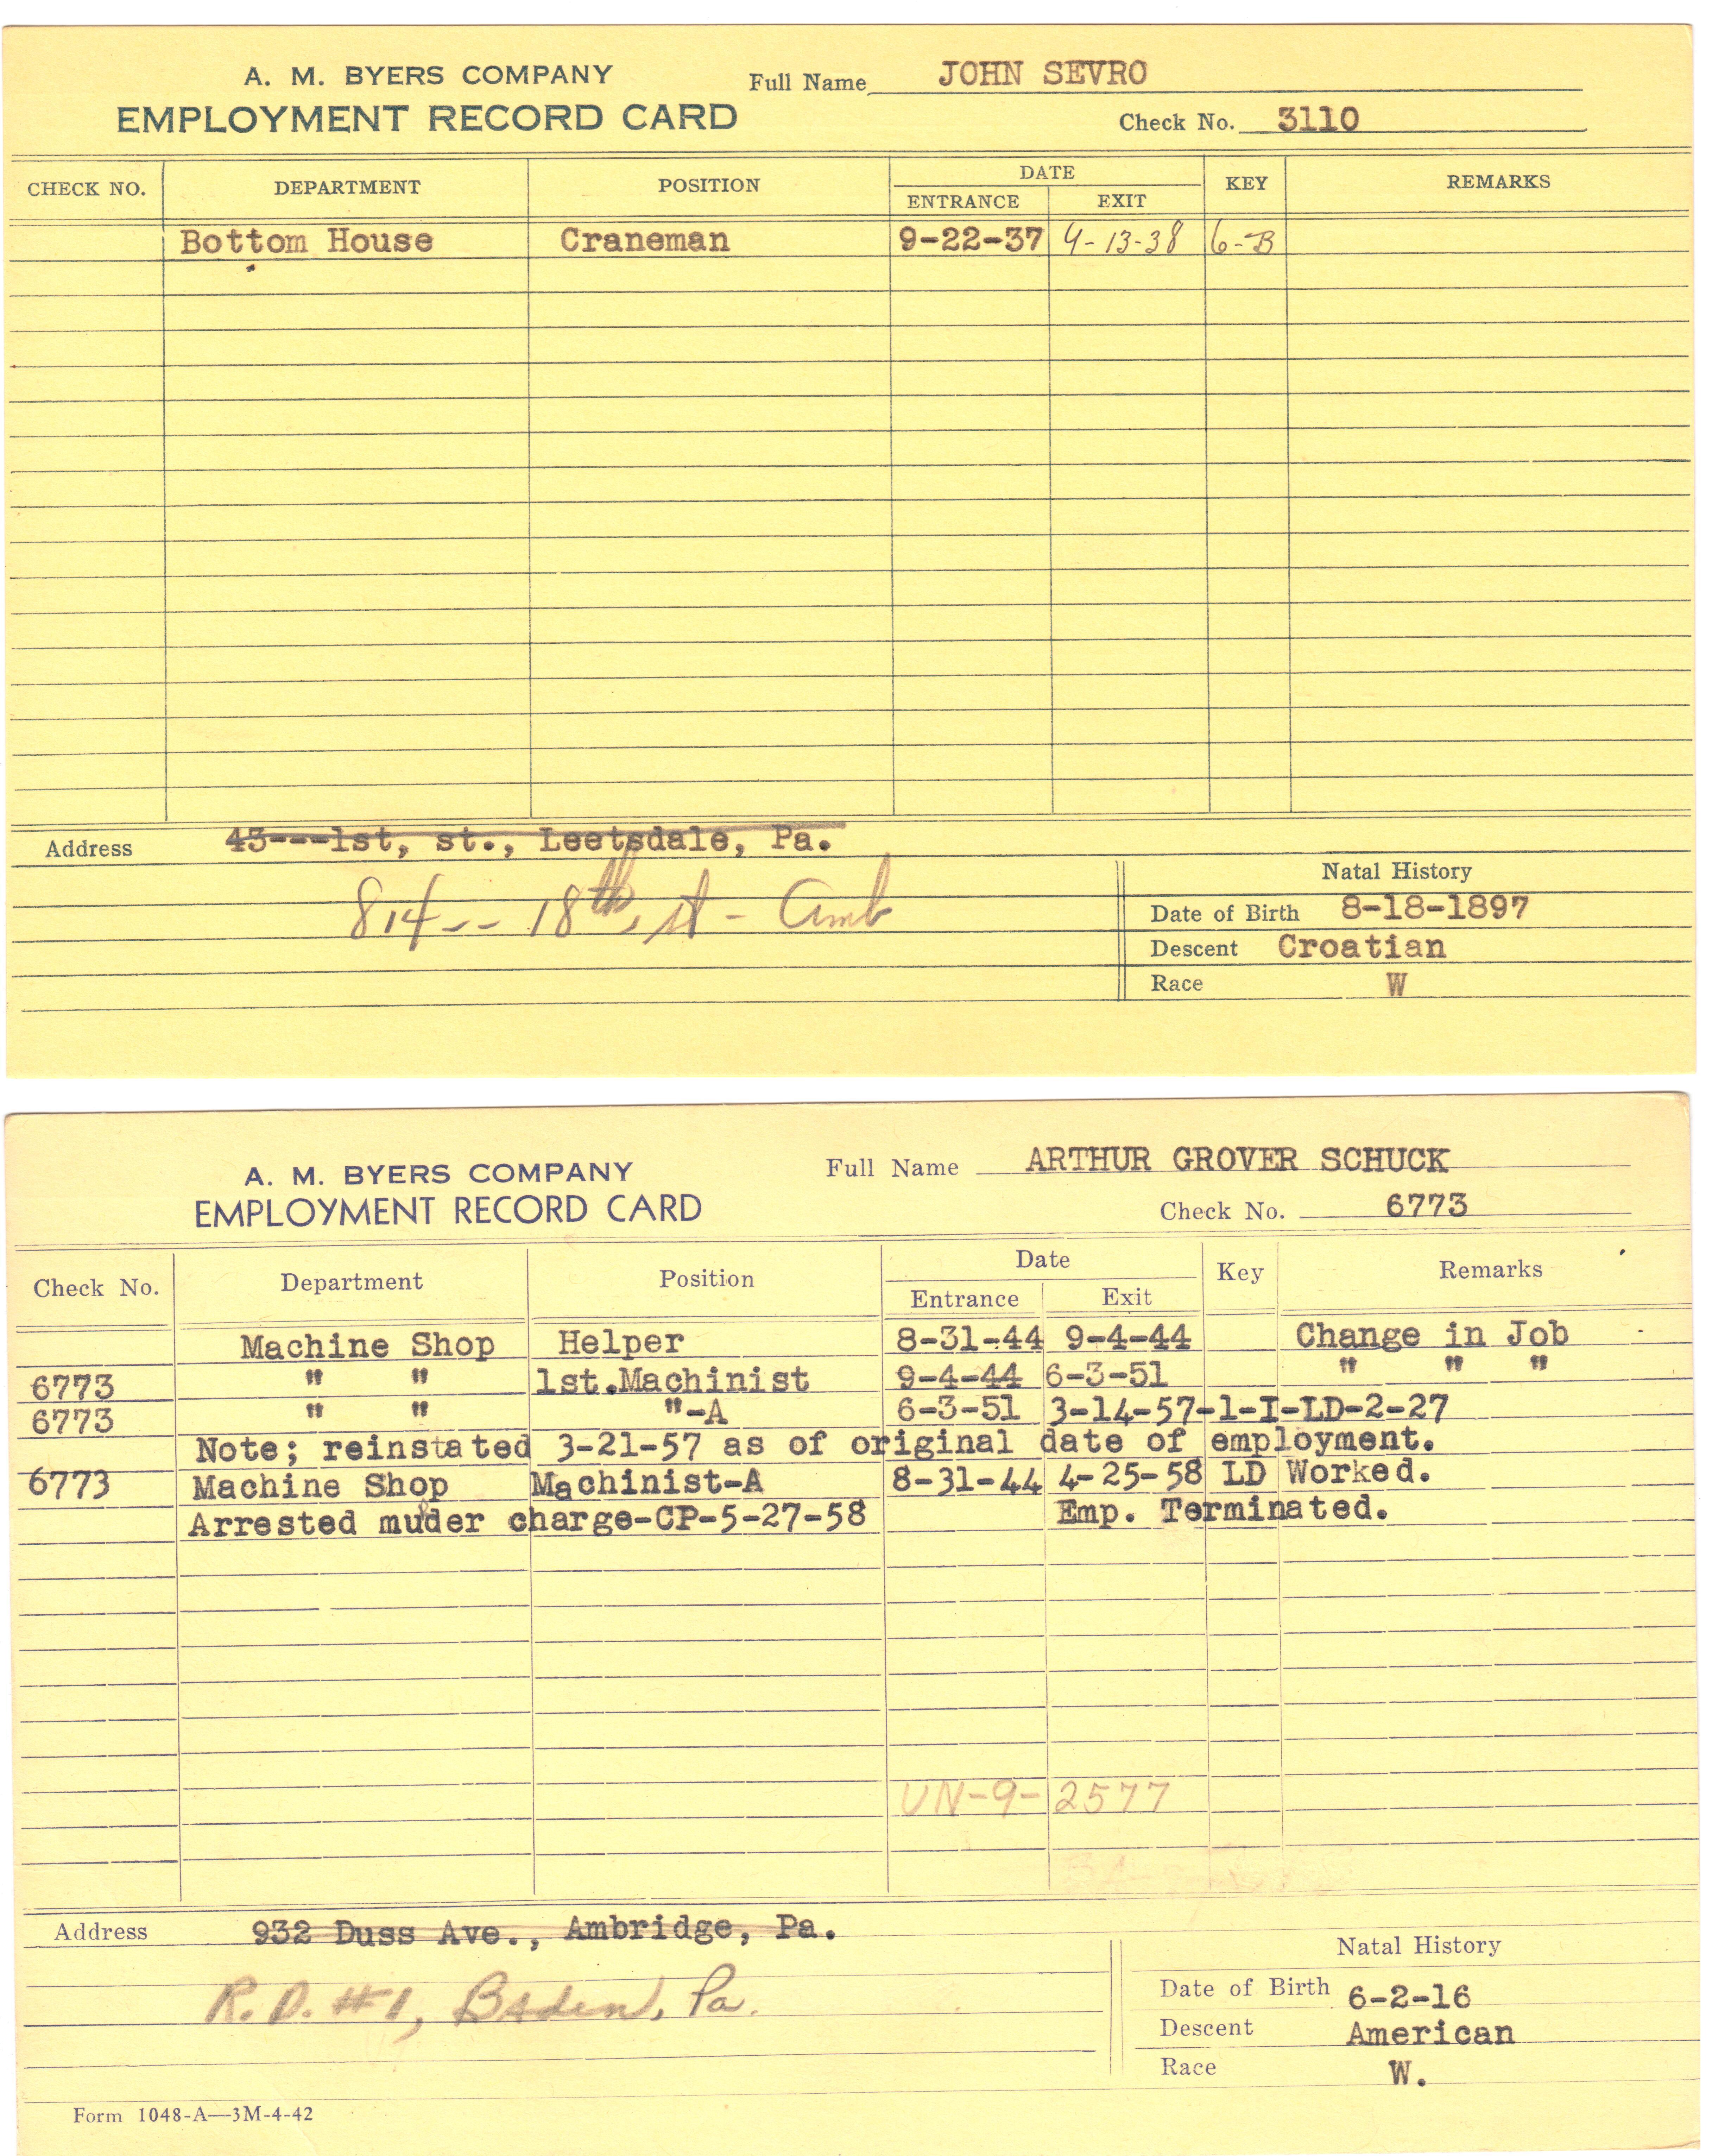 A. M. BYERS COMPANY Full Name JOHN SEVRO
EMPLOYMENT RECORD CARD Check No. 3110
CHECK NO. DEPARTMENT POSITION DATE KEY REMARKS
ENTRANCE EXIT
Bottom House Craneman 9-22-37 4-13-38 6-B
Address 43---1st, st., Leetsdale, Pa.
814-- 18th, st - Amb
Natal History
Date of Birth 8-18-1897
Descent Croatian
Race W
A. M. BYERS COMPANY Full Name ARTHUR GROVER SCHUCK
EMPLOYMENT RECORD CARD Check No. 6773
Check No. Department Position Date Key Remarks
Entrance Exit
Machine Shop Helper 8-31-44 9-4-44 Change in Job
6773 " " 1st.Machinist 9-4-44 6-3-51 " " "
6773 " " "-A 6-3-51 3-14-57-1-I-LD-2-27
Note; reinstated 3-21-57 as of original date of employment.
6773 Machine Shop Machinist-A 8-31-44 4-25-58 LD Worked.
Arrested muder charge-CP-5-27-58 Emp. Terminated.
UN-9-2577
Address 932 Duss Ave., Ambridge, Pa.
R.D. #1, Baden, Pa.
Natal History
Date of Birth 6-2-16
Descent American
Race W.
Form 1048-A—3M-4-42